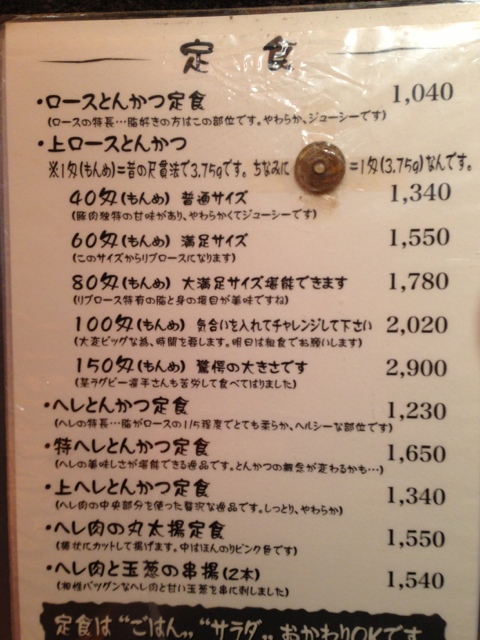 定食
・ロースとんかつ定食 1,040
(ロースの特長…脂好きの方はこの部位です。やわらか、ジューシーです)
・上ロースとんかつ
※1匁(もんめ)=昔の尺貫法で3.75gです。ちなみに =1匁(3.75g)なんです。
40匁(もんめ) 普通サイズ 1,340
(豚肉独特の甘味があり、やわらかくてジューシーです)
60匁(もんめ) 満足サイズ 1,550
(このサイズからリブロースになります)
80匁(もんめ) 大満足サイズ堪能できます 1,780
(リブロース特有の脂と身の境目が美味ですね)
100匁(もんめ) 気合いを入れてチャレンジして下さい 2,020
(大変ビッグな為、時間を要します。明日は和食でお願いします)
150匁(もんめ) 驚愕の大きさです 2,900
(某ラグビー選手さんも苦労して食べてはりました)
・ヘレとんかつ定食 1,230
(ヘレの特長…脂がロースの1/5程度でとても柔らか、ヘルシーな部位です)
・特ヘレとんかつ定食 1,650
(ヘレの美味しさが堪能できる逸品です。とんかつの概念が変わるかも…)
・上ヘレとんかつ定食 1,340
(ヘレ肉の中央部分を使った贅沢な逸品です。しっとり、やわらか)
・ヘレ肉の丸太揚定食 1,550
(棒状にカットして揚げます。中はほんのりピンク色です)
・ヘレ肉と玉葱の串揚(2本) 1,540
(相性バツグンなヘレ肉と甘い玉葱を串に刺しました)
定食は“ごはん„“サラダ„おかわりOKです